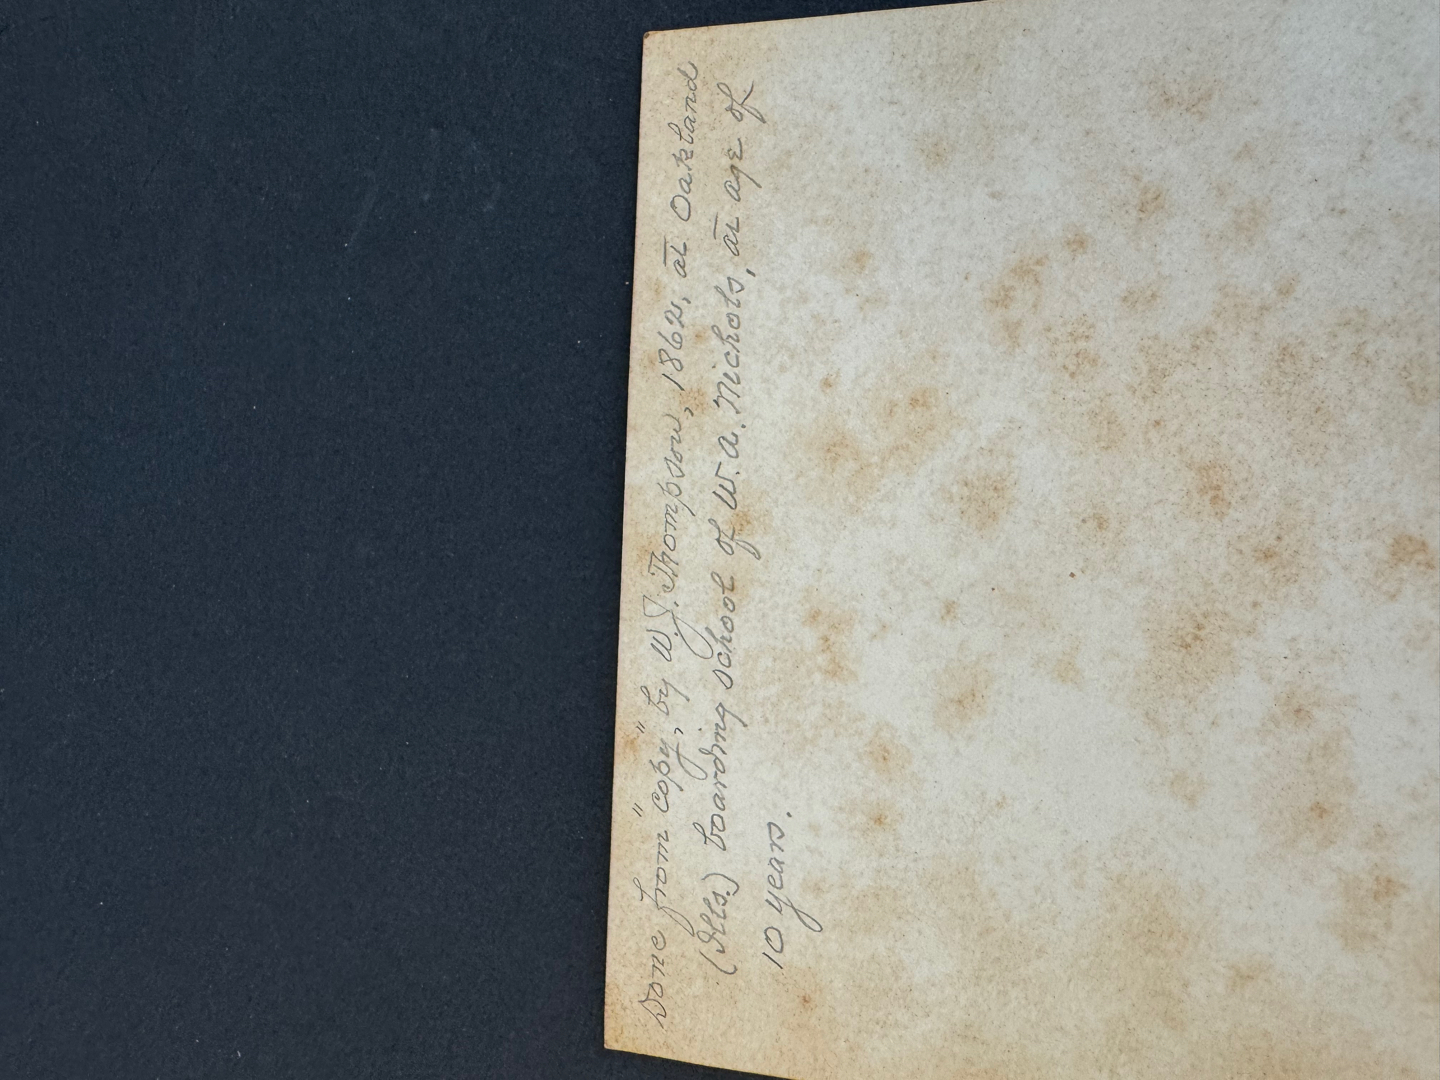 Done from "copy", by W. J. Thompson, 1862, at Oakland
(Ills.) boarding school of W. A. Nichols, at age of
10 years.